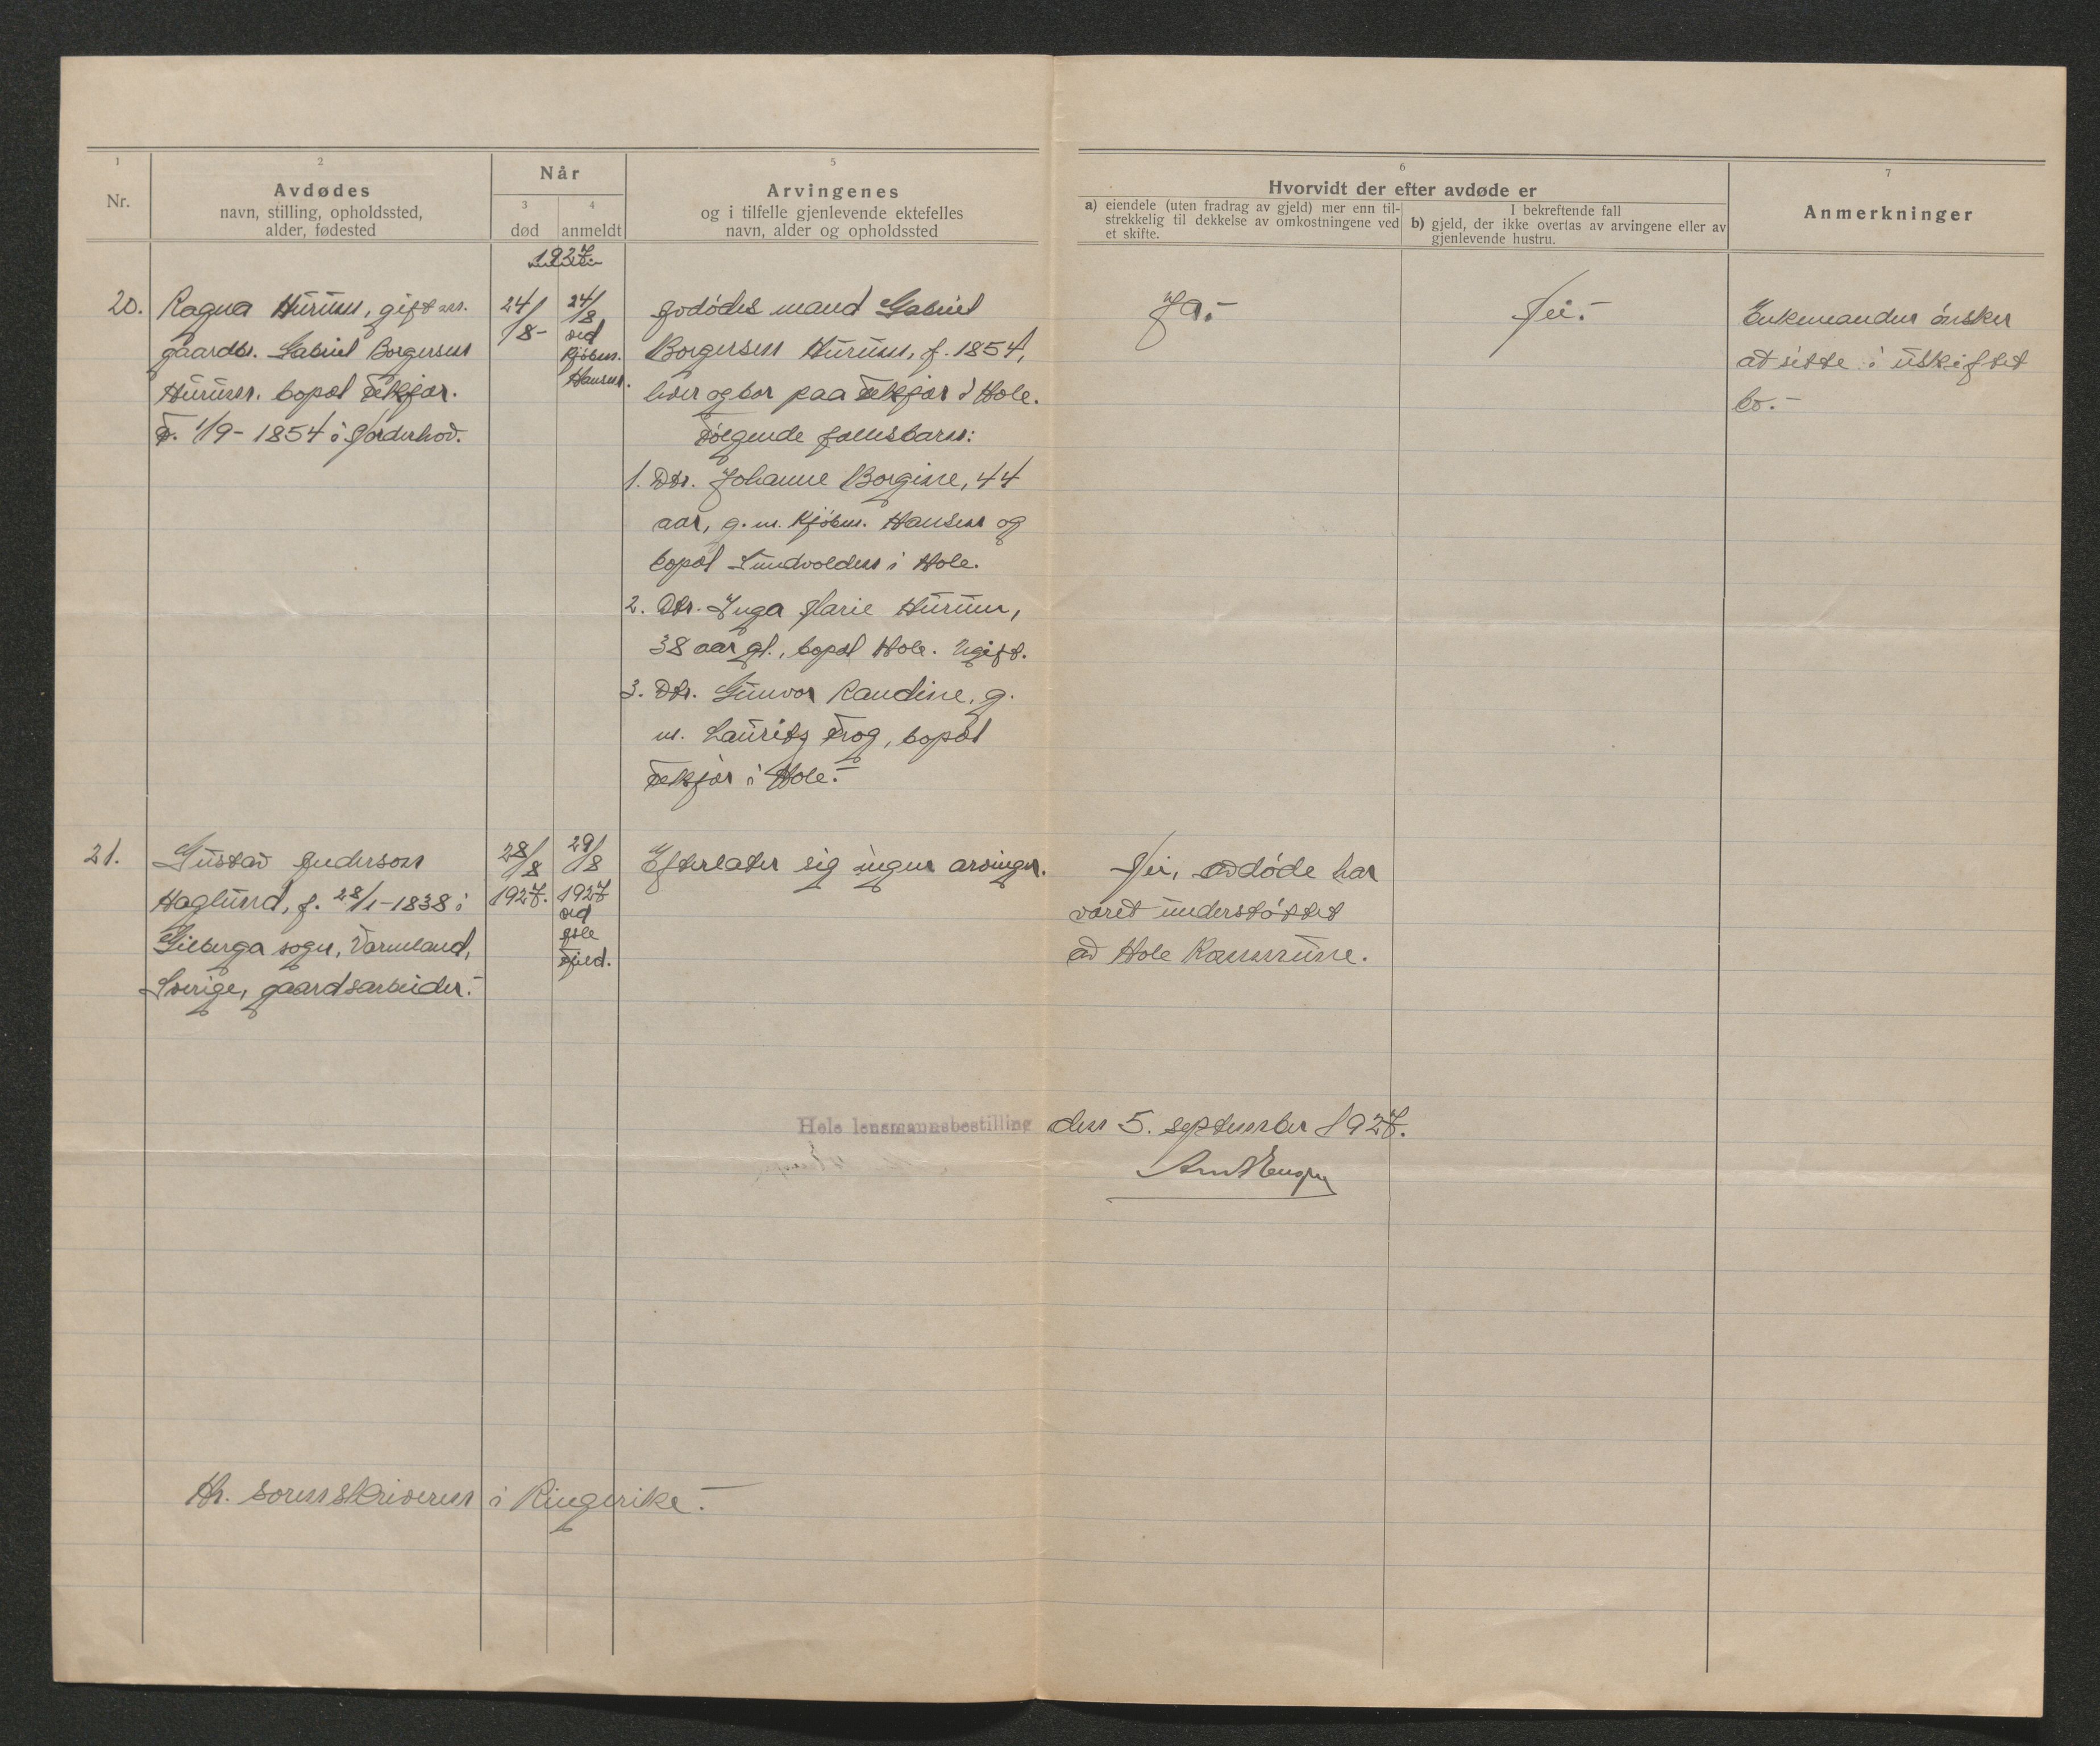 1
2
Når
5
6
7
Nr.
Avdødes
navn, stilling, opholdssted,
alder, fødested
3
død
4
anmeldt
Arvingenes
og i tilfelle gjenlevende ektefelles
navn, alder og opholdssted
Hvorvidt der efter avdøde er
a) eiendele (uten fradrag av gjeld) mer enn til-
strekkelig til dekkelse av omkostningene ved
et skifte.
I bekreftende fall
b) gjeld, der ikke overtas av arvingene eller av
gjenlevende hustru.
Anmerkninger
1927.
20.
Ragna Hurum, gift m.
gaardbr. Gabriel Borgersen
Hurum. bopæl Fekjær.
F. 1/9-1854 i Norderhov.
24/8-
24/8
ved
Kjøbm.
Hansen.
Avdødes mand Gabriel
Borgersen Hurum, f. 1854,
lever og bor paa Fekjær i Hole.
Følgende fællesbarn:
1. Dtr. Johanne Borgine, 44
aar, g. m. Kjøbm. Hansen og
bopæl Sundvolden i Hole.
2. Dtr. Inga Marie Hurum,
38 aar gl., bopæl Hole. Ugift.
3. Dtr. Gunvor Randine, g.
m. Lauritz Frog, bopæl
Fekjær i Hole.-
Ja.-
Nei.-
Enkemanden ønsker
at sitte i uskiftet
bo.-
21.
Gustav Anderson
Haglund, f. 28/1-1838 i
Gilberga sogn, Värmland,
Sverige, gaardsarbeider.-
28/8
1927.
29/8
1927
ved
Fjeld.
Efterlater sig ingen arvinger.
Nei, avdøde har
været understøttet
av Hole Kommune.
Hole lensmannsbestilling den 5. september 1927.
Hr. sorenskriveren i Ringerike.-